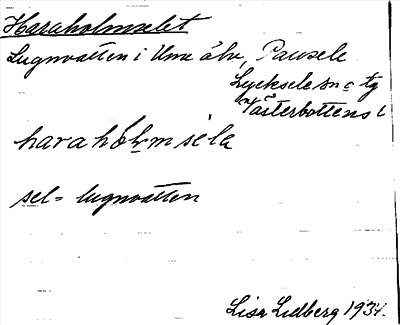 Haraholmselet
Lugnvatten i Ume älv, Pausele
Lycksele sn o tg
Västerbottens l
haraholmsela
sel = lugnvatten
Lisa Lidberg 1934.